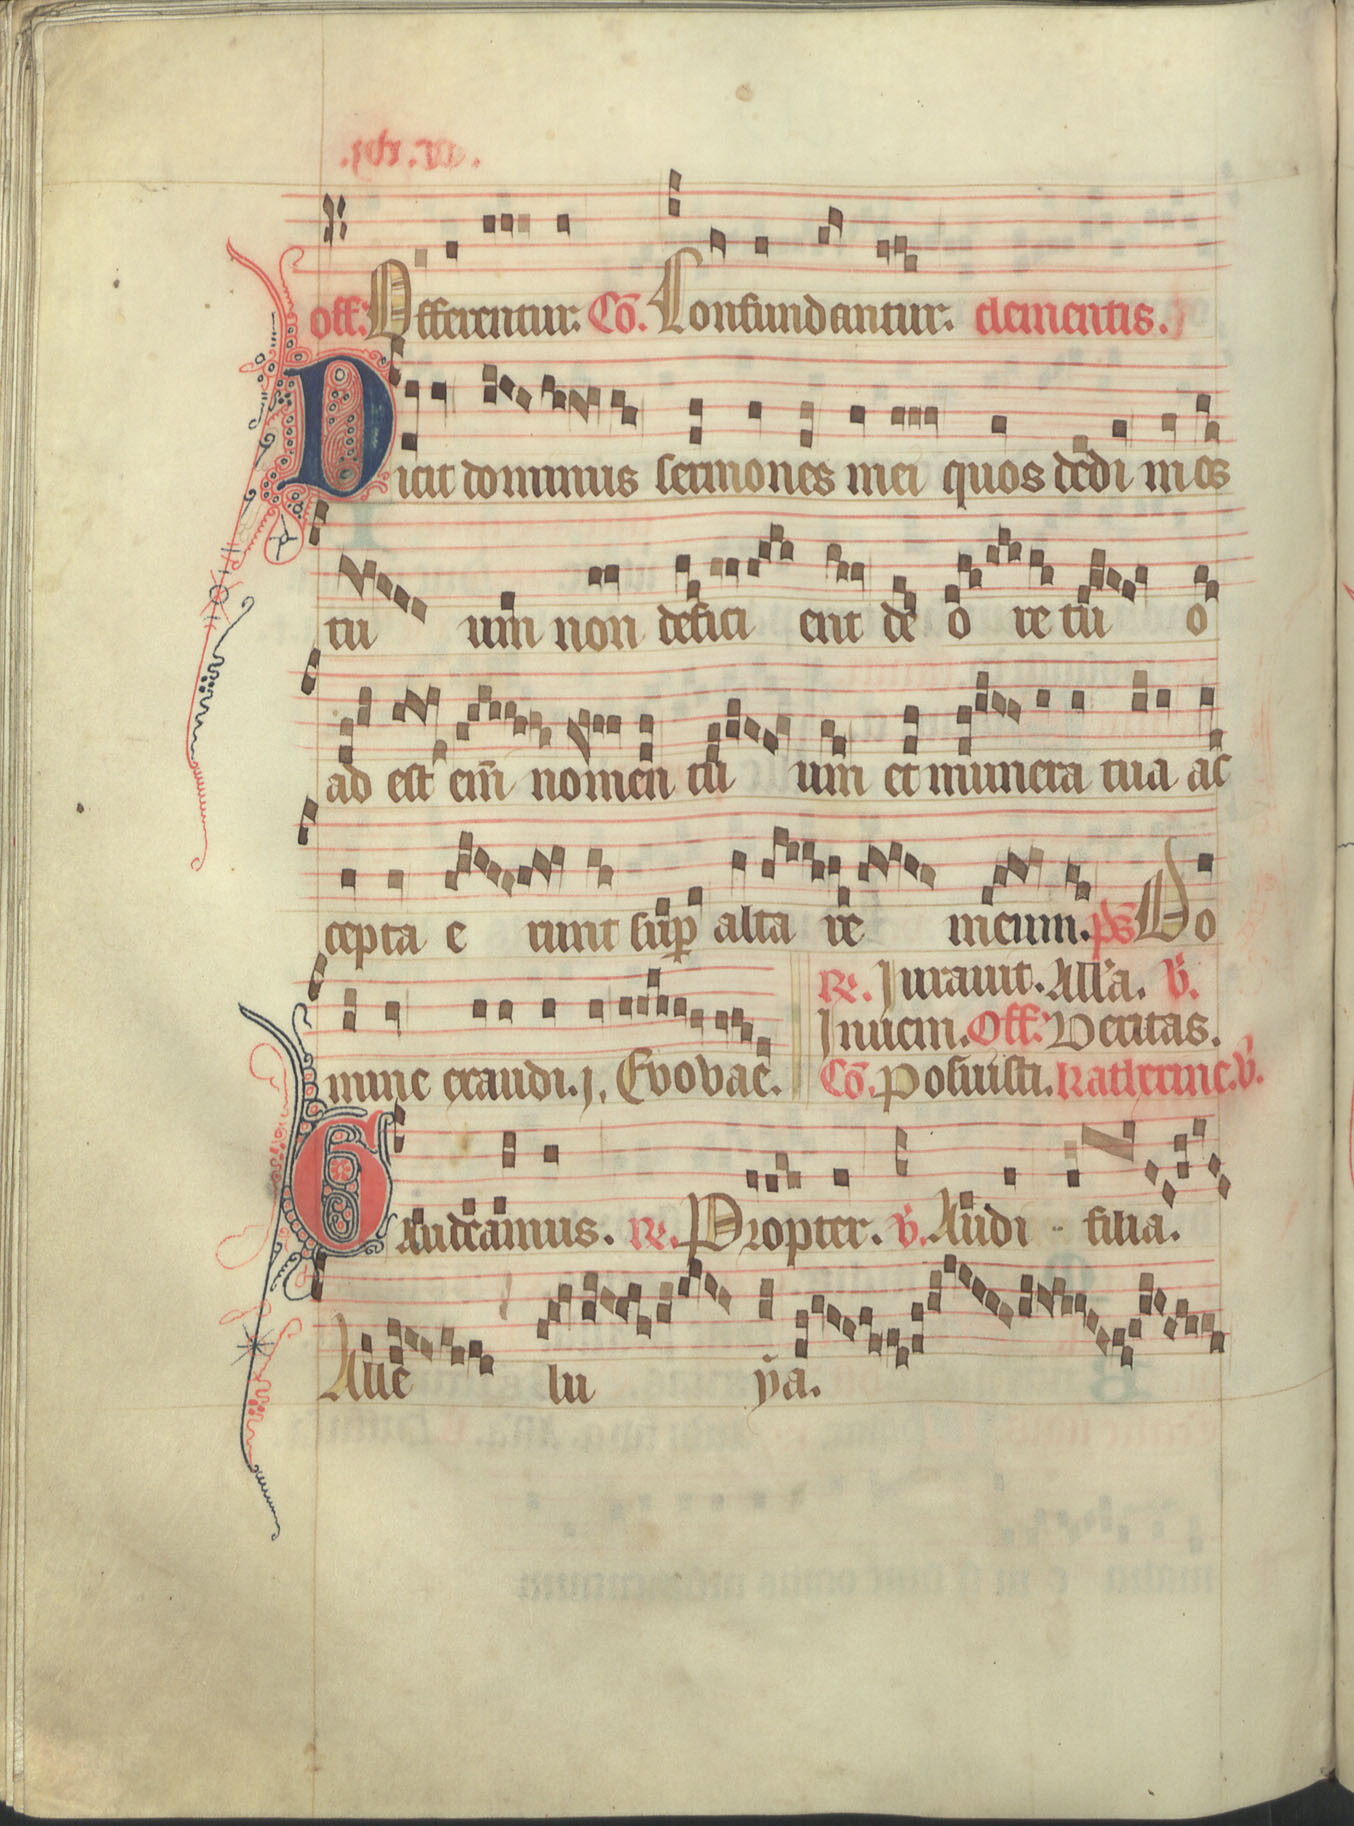 off. Offerentur. Cō. Confundantur. clementis.
Dicit dominus sermones mei quos dedi in os
tu um non defici ent de o re tu o
ad est em̄ nomen tu um et munera tua ac
cepta e runt sup̱ alta re meum. ps̄ Do
mine exaudi. j. Evovae.
R̄. Jurauit. All'a. v̄.
Inueni. Off. Veritas.
Cō. Posuisti. Katherine. v̄.
Gaudeamus. R̄. Propter. v̄. Audi - filia.
Alle lu ya.